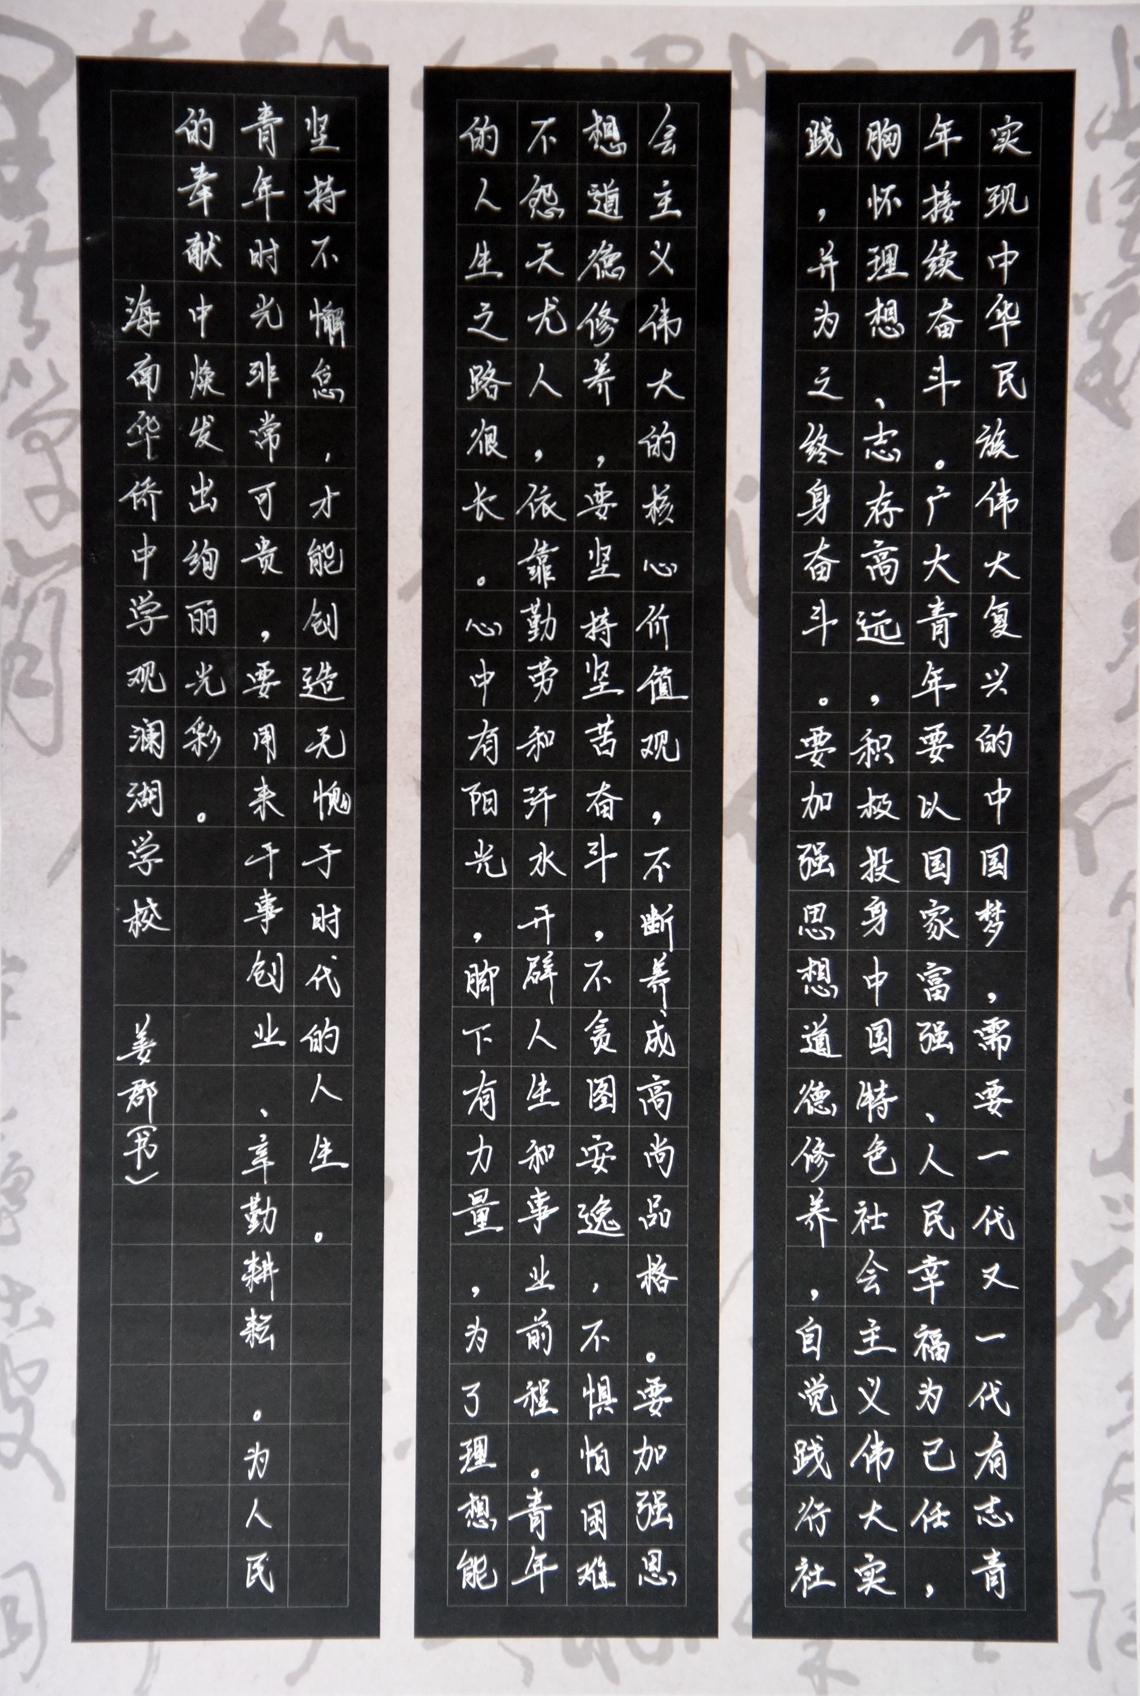 实现中华民族伟大复兴的中国梦，需要一代又一代有志青
年接续奋斗。广大青年要以国家富强、人民幸福为己任，
胸怀理想、志存高远，积极投身中国特色社会主义伟大实
践，并为之终身奋斗。要加强思想道德修养，自觉践行社
会主义伟大的核心价值观，不断养成高尚品格。要加强思
想道德修养，要坚持坚苦奋斗，不贪图安逸，不惧怕困难
不怨天尤人，依靠勤劳和汗水开辟人生和事业前程。青年
的人生之路很长。心中有阳光，脚下有力量，为了理想能
坚持不懈怠，才能创造无愧于时代的人生。
青年时光非常可贵，要用来干事创业、辛勤耕耘。为人民
的奉献中焕发出绚丽光彩。
海南华侨中学观澜湖学校 姜郡（书）